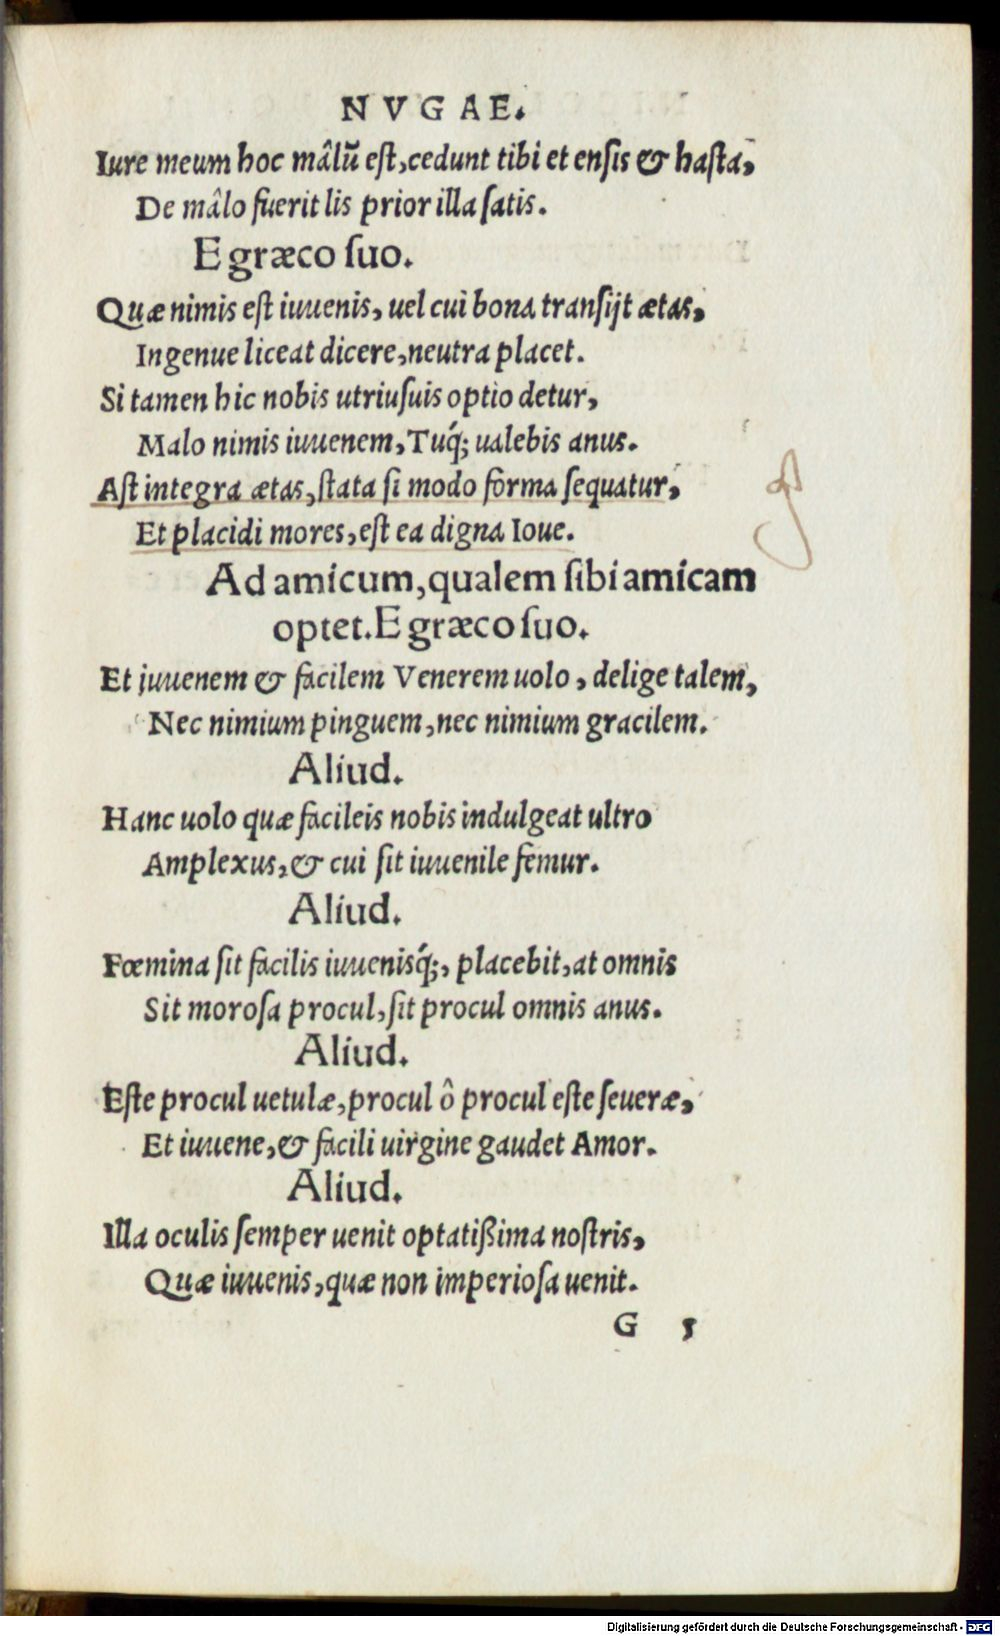 NVGAE.
Iure meum hoc mâlū est, cedunt tibi et ensis & hasta,
De mâlo fuerit lis prior illa satis.
E græco suo.
Quæ nimis est iuuenis, uel cui bona transijt ætas,
Ingenue liceat dicere, neutra placet.
Si tamen hic nobis utriusuis optio detur,
Malo nimis iuuenem, Tuq́; ualebis anus.
Ast integra ætas, stata si modo forma sequatur,
Et placidi mores, est ea digna Ioue.
Ad amicum, qualem sibi amicam
optet. E græco suo.
Et iuuenem & facilem Venerem uolo, delige talem,
Nec nimium pinguem, nec nimium gracilem.
Aliud.
Hanc uolo quæ facileis nobis indulgeat ultro
Amplexus, & cui sit iuuenile femur.
Aliud.
Fœmina sit facilis iuuenisq́;, placebit, at omnis
Sit morosa procul, sit procul omnis anus.
Aliud.
Este procul uetulæ, procul ô procul este seueræ,
Et iuuene, & facili uirgine gaudet Amor.
Aliud.
Illa oculis semper uenit optatißima nostris,
Quæ iuuenis, quæ non imperiosa uenit.
G 5
Digitalisierung gefördert durch die Deutsche Forschungsgemeinschaft - DFG